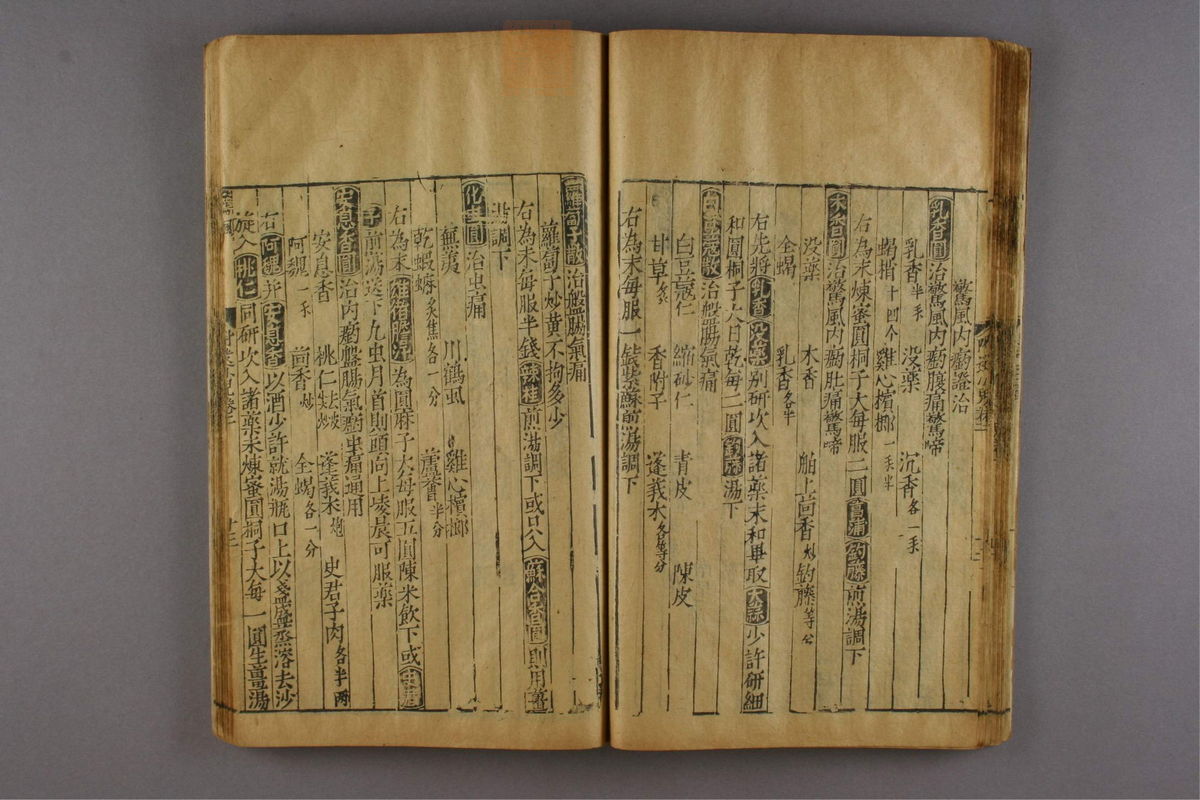 驚風內瘹證治
乳香圓治驚風內瘹腹痛驚啼
乳香半錢 没藥 沉香各一錢
蝎梢十四个 雞心檳榔一錢半
右為末煉蜜圓桐子大每服二圓菖蒲鈎藤煎湯調下
木香圓治驚風內瘹肚痛驚啼
没藥 木香 舶上茴香炒 鈎藤等分
全蝎 乳香各半
右先將乳香没藥別研次入諸藥末和畢取大蒜少許研細
和圓桐子大日乾每二圓鈎藤湯下
白豆蔻散治盤腸氣痛
白豆蔻仁 縮砂仁 青皮 陳皮
甘草炙 香附子 蓬莪朮各等分
右為末每服一錢紫蘇煎湯調下
蘿蔔子散治盤腸氣痛
蘿蔔子炒黃不拘多少
右為末每服半錢辣桂煎湯調下或只入蘇合香圓則用薑
湯調下
化䘉圓治虫痛
蕪荑 川鶴虱 雞心檳榔
乾蝦蟆炙焦各一分 蘆薈半分
右為末雄猪膽汁為圓麻子大每服五圓陳米飲下或史君
子煎湯送下凡虫月首則頭向上凌晨可服藥
安息香圓治內瘹盤腸氣瘹虫痛通用
安息香 桃仁去皮炒 蓬莪朮炮 史君子肉各半兩
阿魏一錢 茴香炒 全蝎各一分
右阿魏并安息香以酒少許就湯瓶口上以盞盛蒸溶去沙
旋入桃仁同研次入諸藥末煉蜜圓桐子大每一圓生薑湯